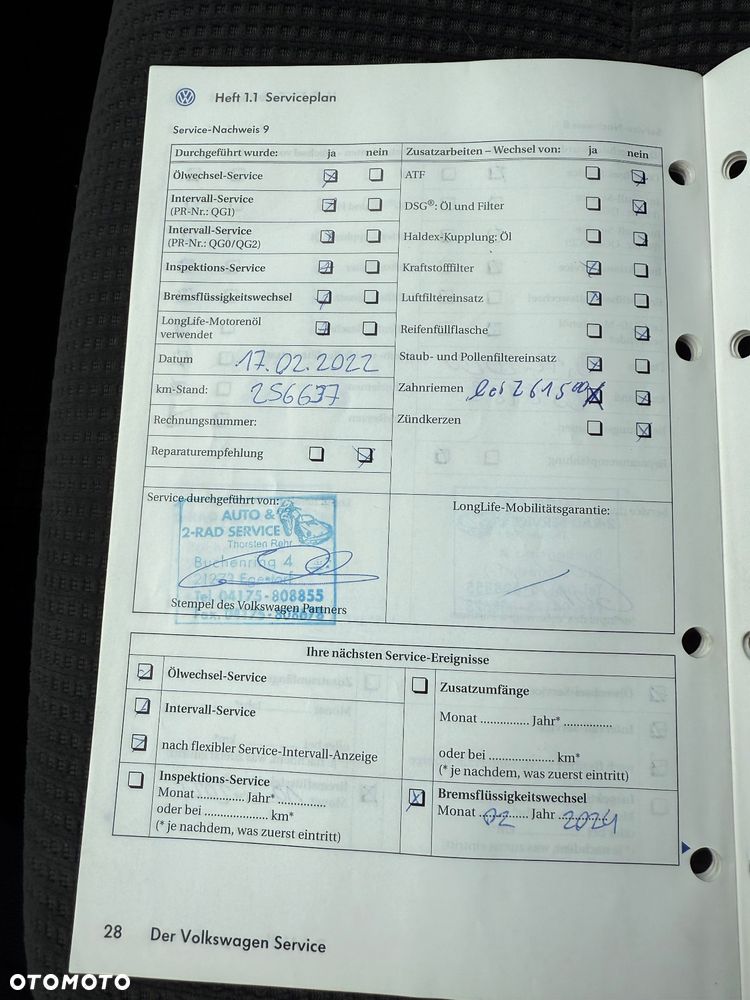 Heft 1.1 Serviceplan
Service-Nachweis 9
Durchgeführt wurde: ja nein
Ölwechsel-Service
Intervall-Service
(PR-Nr.: QG1)
Intervall-Service
(PR-Nr.: QG0/QG2)
Inspektions-Service
Bremsflüssigkeitswechsel
LongLife-Motorenöl
verwendet
Datum 17.02.2022
km-Stand: 256637
Rechnungsnummer:
Reparaturempfehlung
Zusatzarbeiten – Wechsel von: ja nein
ATF
DSG®: Öl und Filter
Haldex-Kupplung: Öl
Kraftstofffilter
Luftfiltereinsatz
Reifenfüllflasche
Staub- und Pollenfiltereinsatz
Zahnriemen
Zündkerzen
Service durchgeführt von:
AUTO &
2-RAD SERVICE
Thorsten Rehr
Buchenring 4
21272 Egestorf
Tel. 04175-808855
Stempel des Volkswagen Partners
LongLife-Mobilitätsgarantie:
Ihre nächsten Service-Ereignisse
Ölwechsel-Service
Intervall-Service
nach flexibler Service-Intervall-Anzeige
Inspektions-Service
Monat .............. Jahr* ..............
oder bei ................... km*
(* je nachdem, was zuerst eintritt)
Zusatzumfänge
Monat .............. Jahr* ..............
oder bei ................... km*
(* je nachdem, was zuerst eintritt)
Bremsflüssigkeitswechsel
Monat 02 Jahr 2024
28 Der Volkswagen Service
OTOMOTO